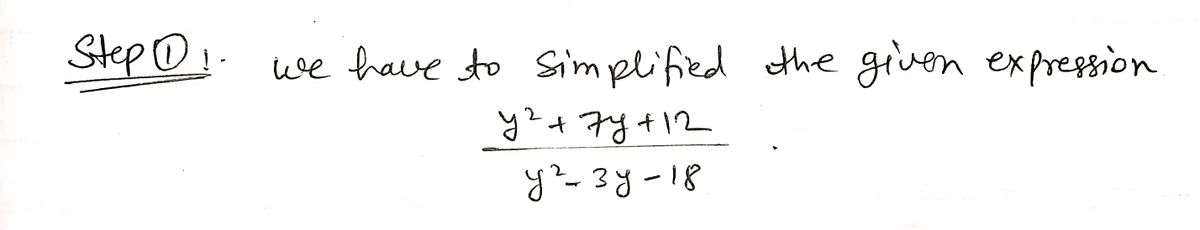 Step ① :- we have to simplified the given expression
y² + 7y + 12
y² - 3y - 18 .